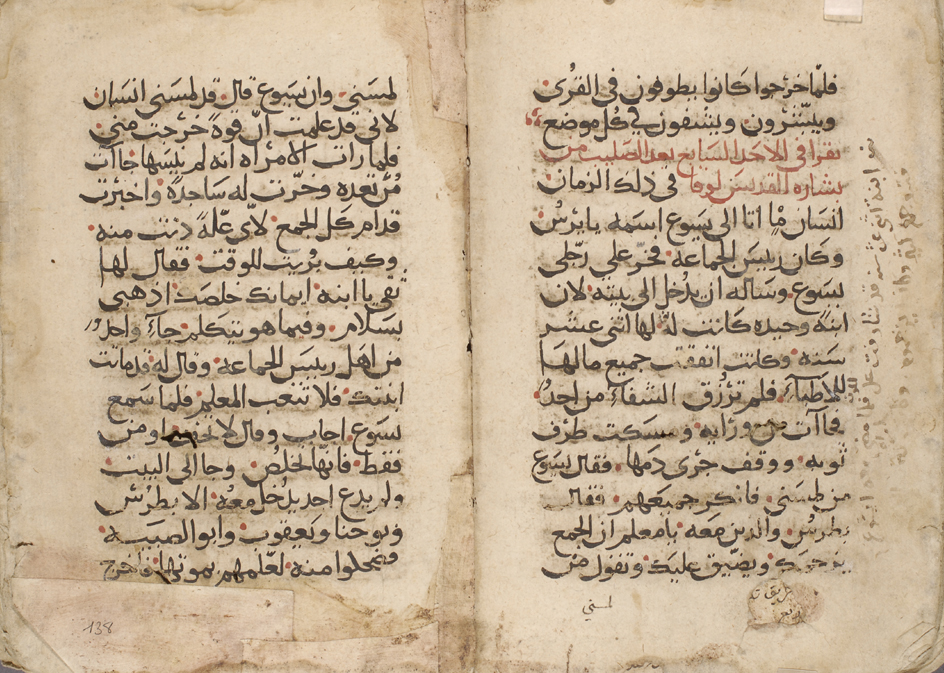 فلما خرجوا كانوا يطوفون في القرى
ويبشرون ويشفون في كل موضع
يقرا في الاحد السابع بعد الصليب من
بشاره القديس لوقا في ذلك الزمان
انسان ما اتا الى يسوع اسمه يايرس
وكان رييس الجماعه فخر علي رجلي
يسوع وساله ان يدخل الى بيته لان
ابنه وحيده كانت له لها اثنى عشر
سنه وكانت انفقت جميع مالها
للاطباء فلم ترزق الشفاء من احد
فجاات من ورايه ومسكت طرف
ثوبه ووقف جرى دمها فقال يسوع
من لمسني فانكر جميعهم فقال
بطرس والذين معه يا معلم ان الجمع
يزحمك ويضيق عليك وتقول من
لمسني
لمسني وان يسوع قال قد لمسني انسان
لاني قد علمت ان قوة خرجت مني
فلما رات الامراه انه لم ينسها جاات
مرتعده وخرت له ساجدة واخبرت
قدام كل الجمع لاي علة دنت منه
وكيف بريت للوقت فقال لها
ثقي يا ابنه ايمانك خلصك اذهبي
بسلام وفيما هو يتكلم جاء واحد
من اهل رييس الجماعه وقال له قد ماتت
ابنتك فلا تتعب المعلم فلما سمع
يسوع اجاب وقال لا تخف اومن
فقط فانها تخلص وجا الى البيت
ولم يدع احد يدخل معه الا بطرس
ويوحنا ويعقوب وابو الصبيه
وضحكوا منه لعلمهم بموتها فاخرج
138